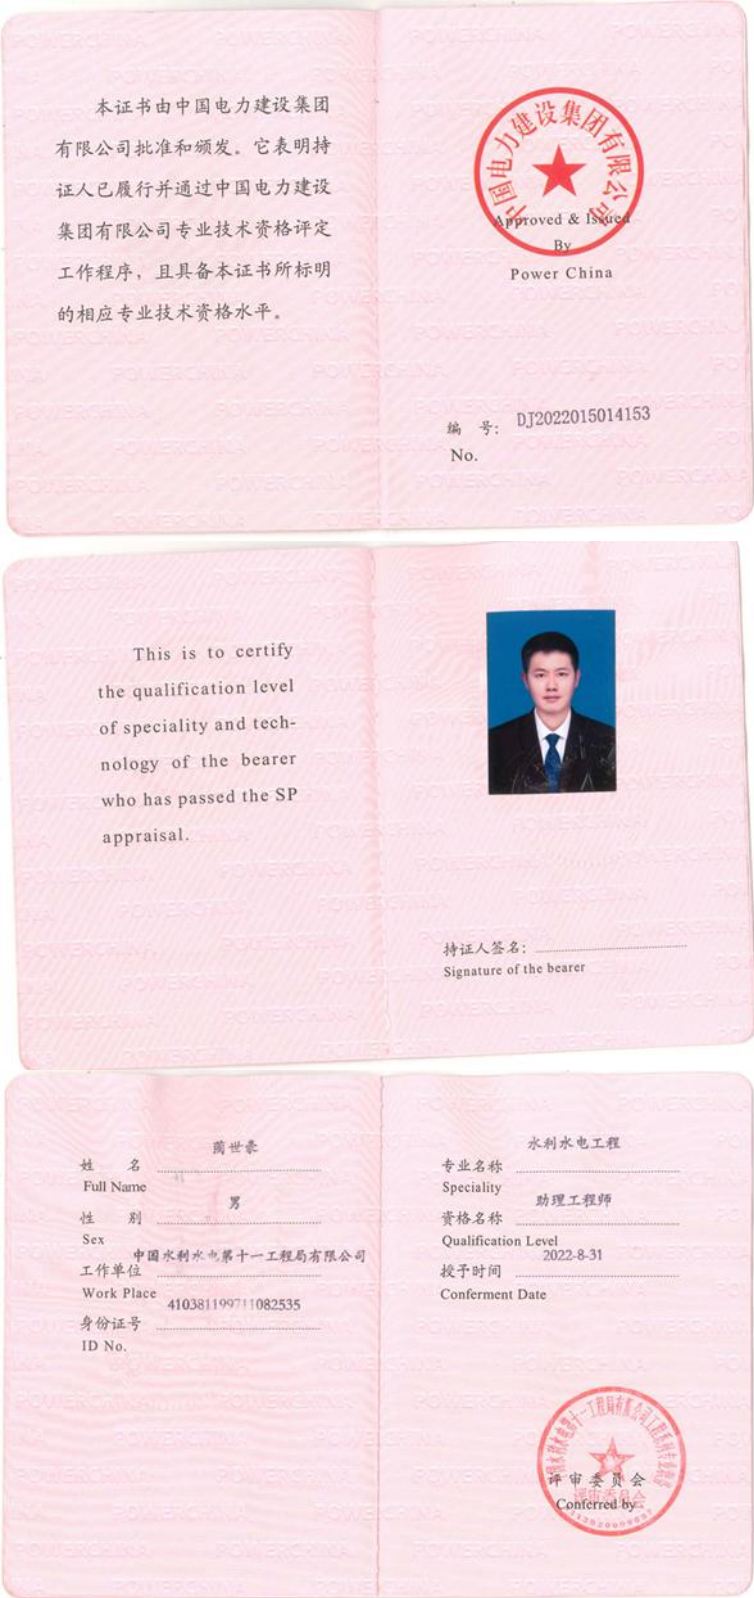 本证书由中国电力建设集团
有限公司批准和颁发。它表明持
证人已履行并通过中国电力建设
集团有限公司专业技术资格评定
工作程序，且具备本证书所标明
的相应专业技术资格水平。
中国电力建设集团有限公司
Approved & Issued
By
Power China
编 号: DJ2022015014153
No.
This is to certify
the qualification level
of speciality and tech-
nology of the bearer
who has passed the SP
appraisal.
持证人签名:
Signature of the bearer
姓 名 蔺世豪
Full Name
性 别 男
Sex
中国水利水电第十一工程局有限公司
工作单位
Work Place
410381199711082535
身份证号
ID No.
水利水电工程
专业名称
Speciality
助理工程师
资格名称
Qualification Level
2022-8-31
授予时间
Conferment Date
评审委员会
Conferred by
POWERCHINA